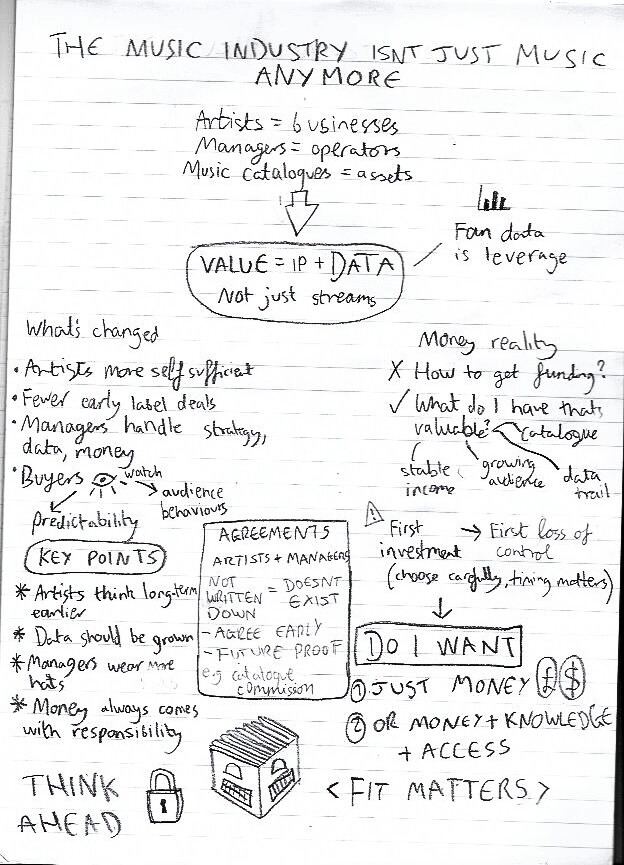 THE MUSIC INDUSTRY ISNT JUST MUSIC
ANYMORE
Artists = businesses
Managers = operators
Music catalogues = assets
VALUE = IP + DATA
Not just streams
Fan data
is leverage
What's changed
• Artists more self sufficient
• Fewer early label deals
• Managers handle strategy,
data, money
• Buyers watch
→ audience
behaviours
predictability
Money reality
X How to get funding?
✓ What do I have thats
valuable?
catalogue
stable
income
growing
audience
data
trail
! First
investment
→ First loss of
control
(choose carefully, timing matters)
KEY POINTS
* Artists think long-term
earlier
* Data should be grown
* Managers wear more
hats
* Money always comes
with responsibility
AGREEMENTS
ARTISTS + MANAGERS
NOT
WRITTEN = DOESNT
DOWN EXIST
- AGREE EARLY
- FUTURE PROOF
e.g catalogue
commission
DO I WANT
① JUST MONEY £ $
② OR MONEY + KNOWLEDGE
+ ACCESS
< FIT MATTERS >
THINK
AHEAD